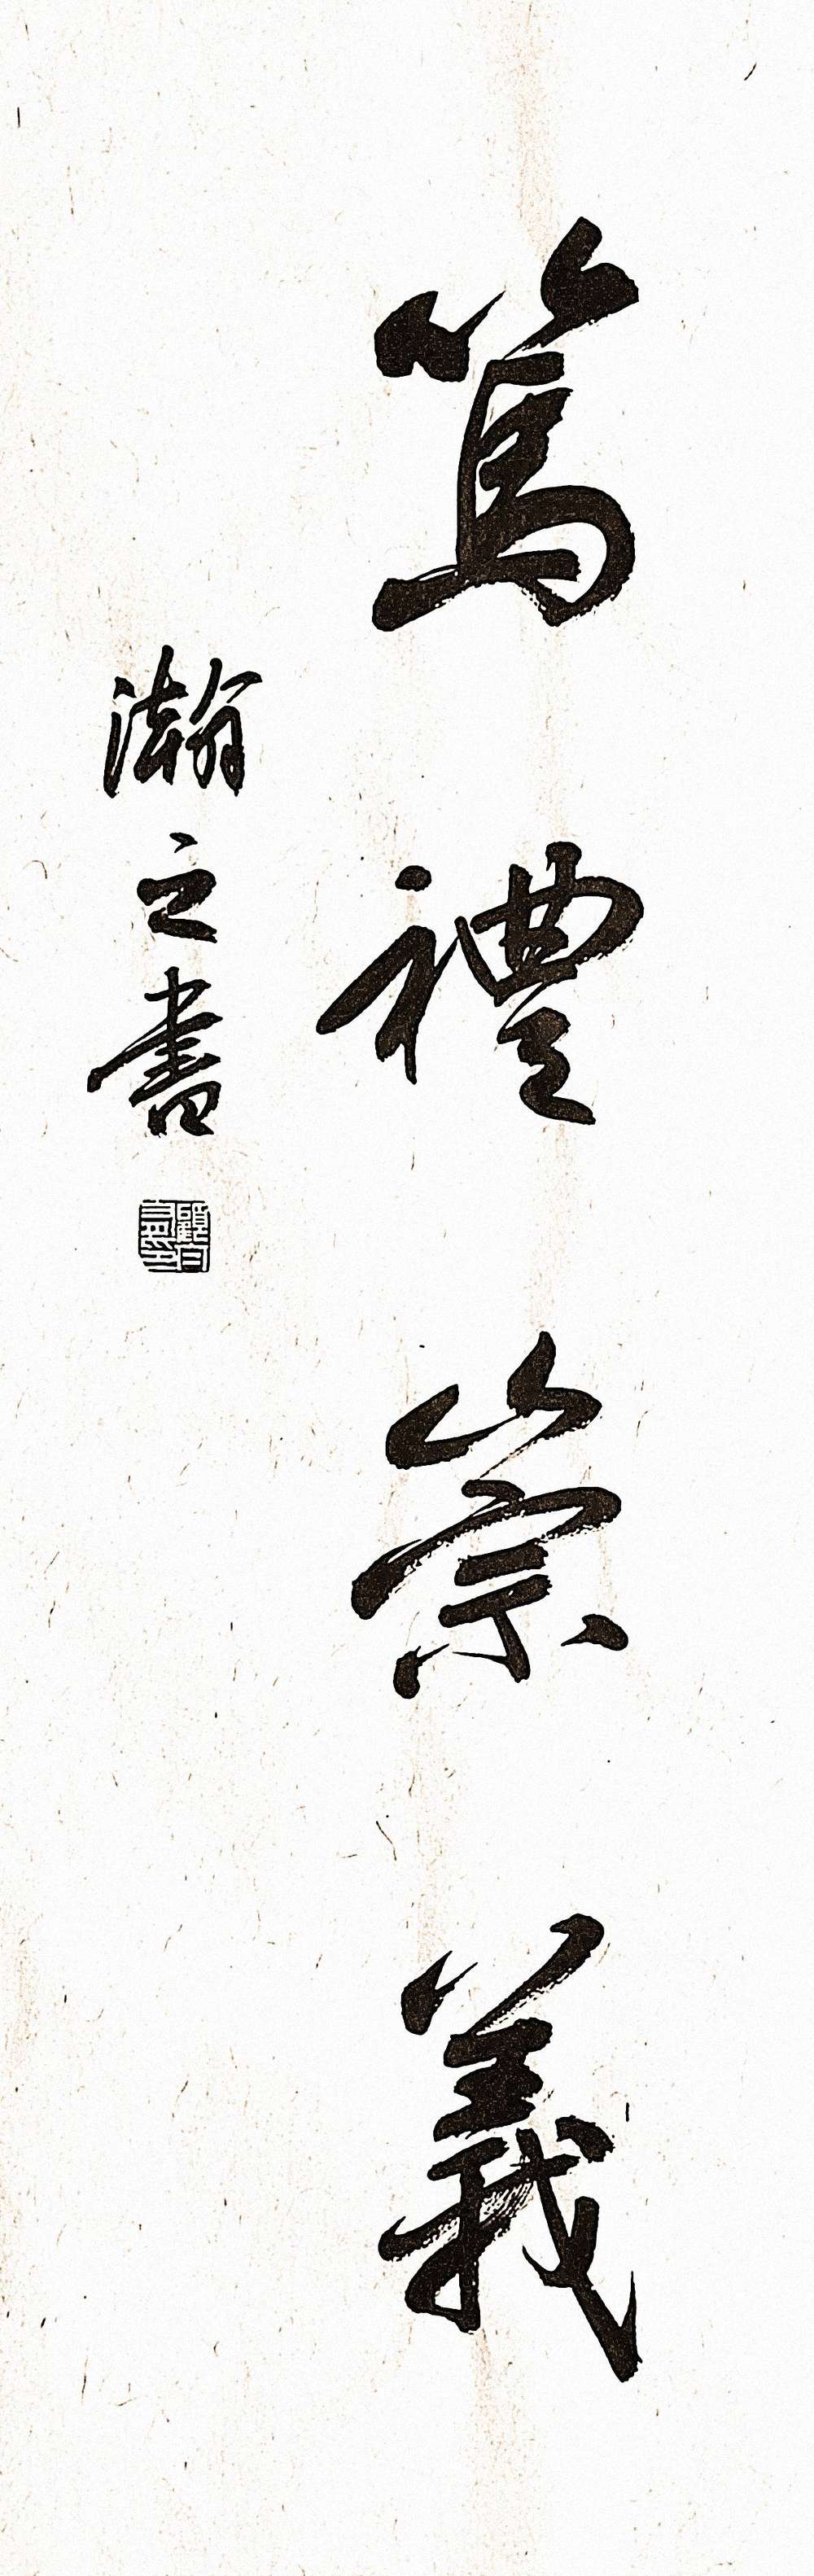 篤禮崇義
瀚之書